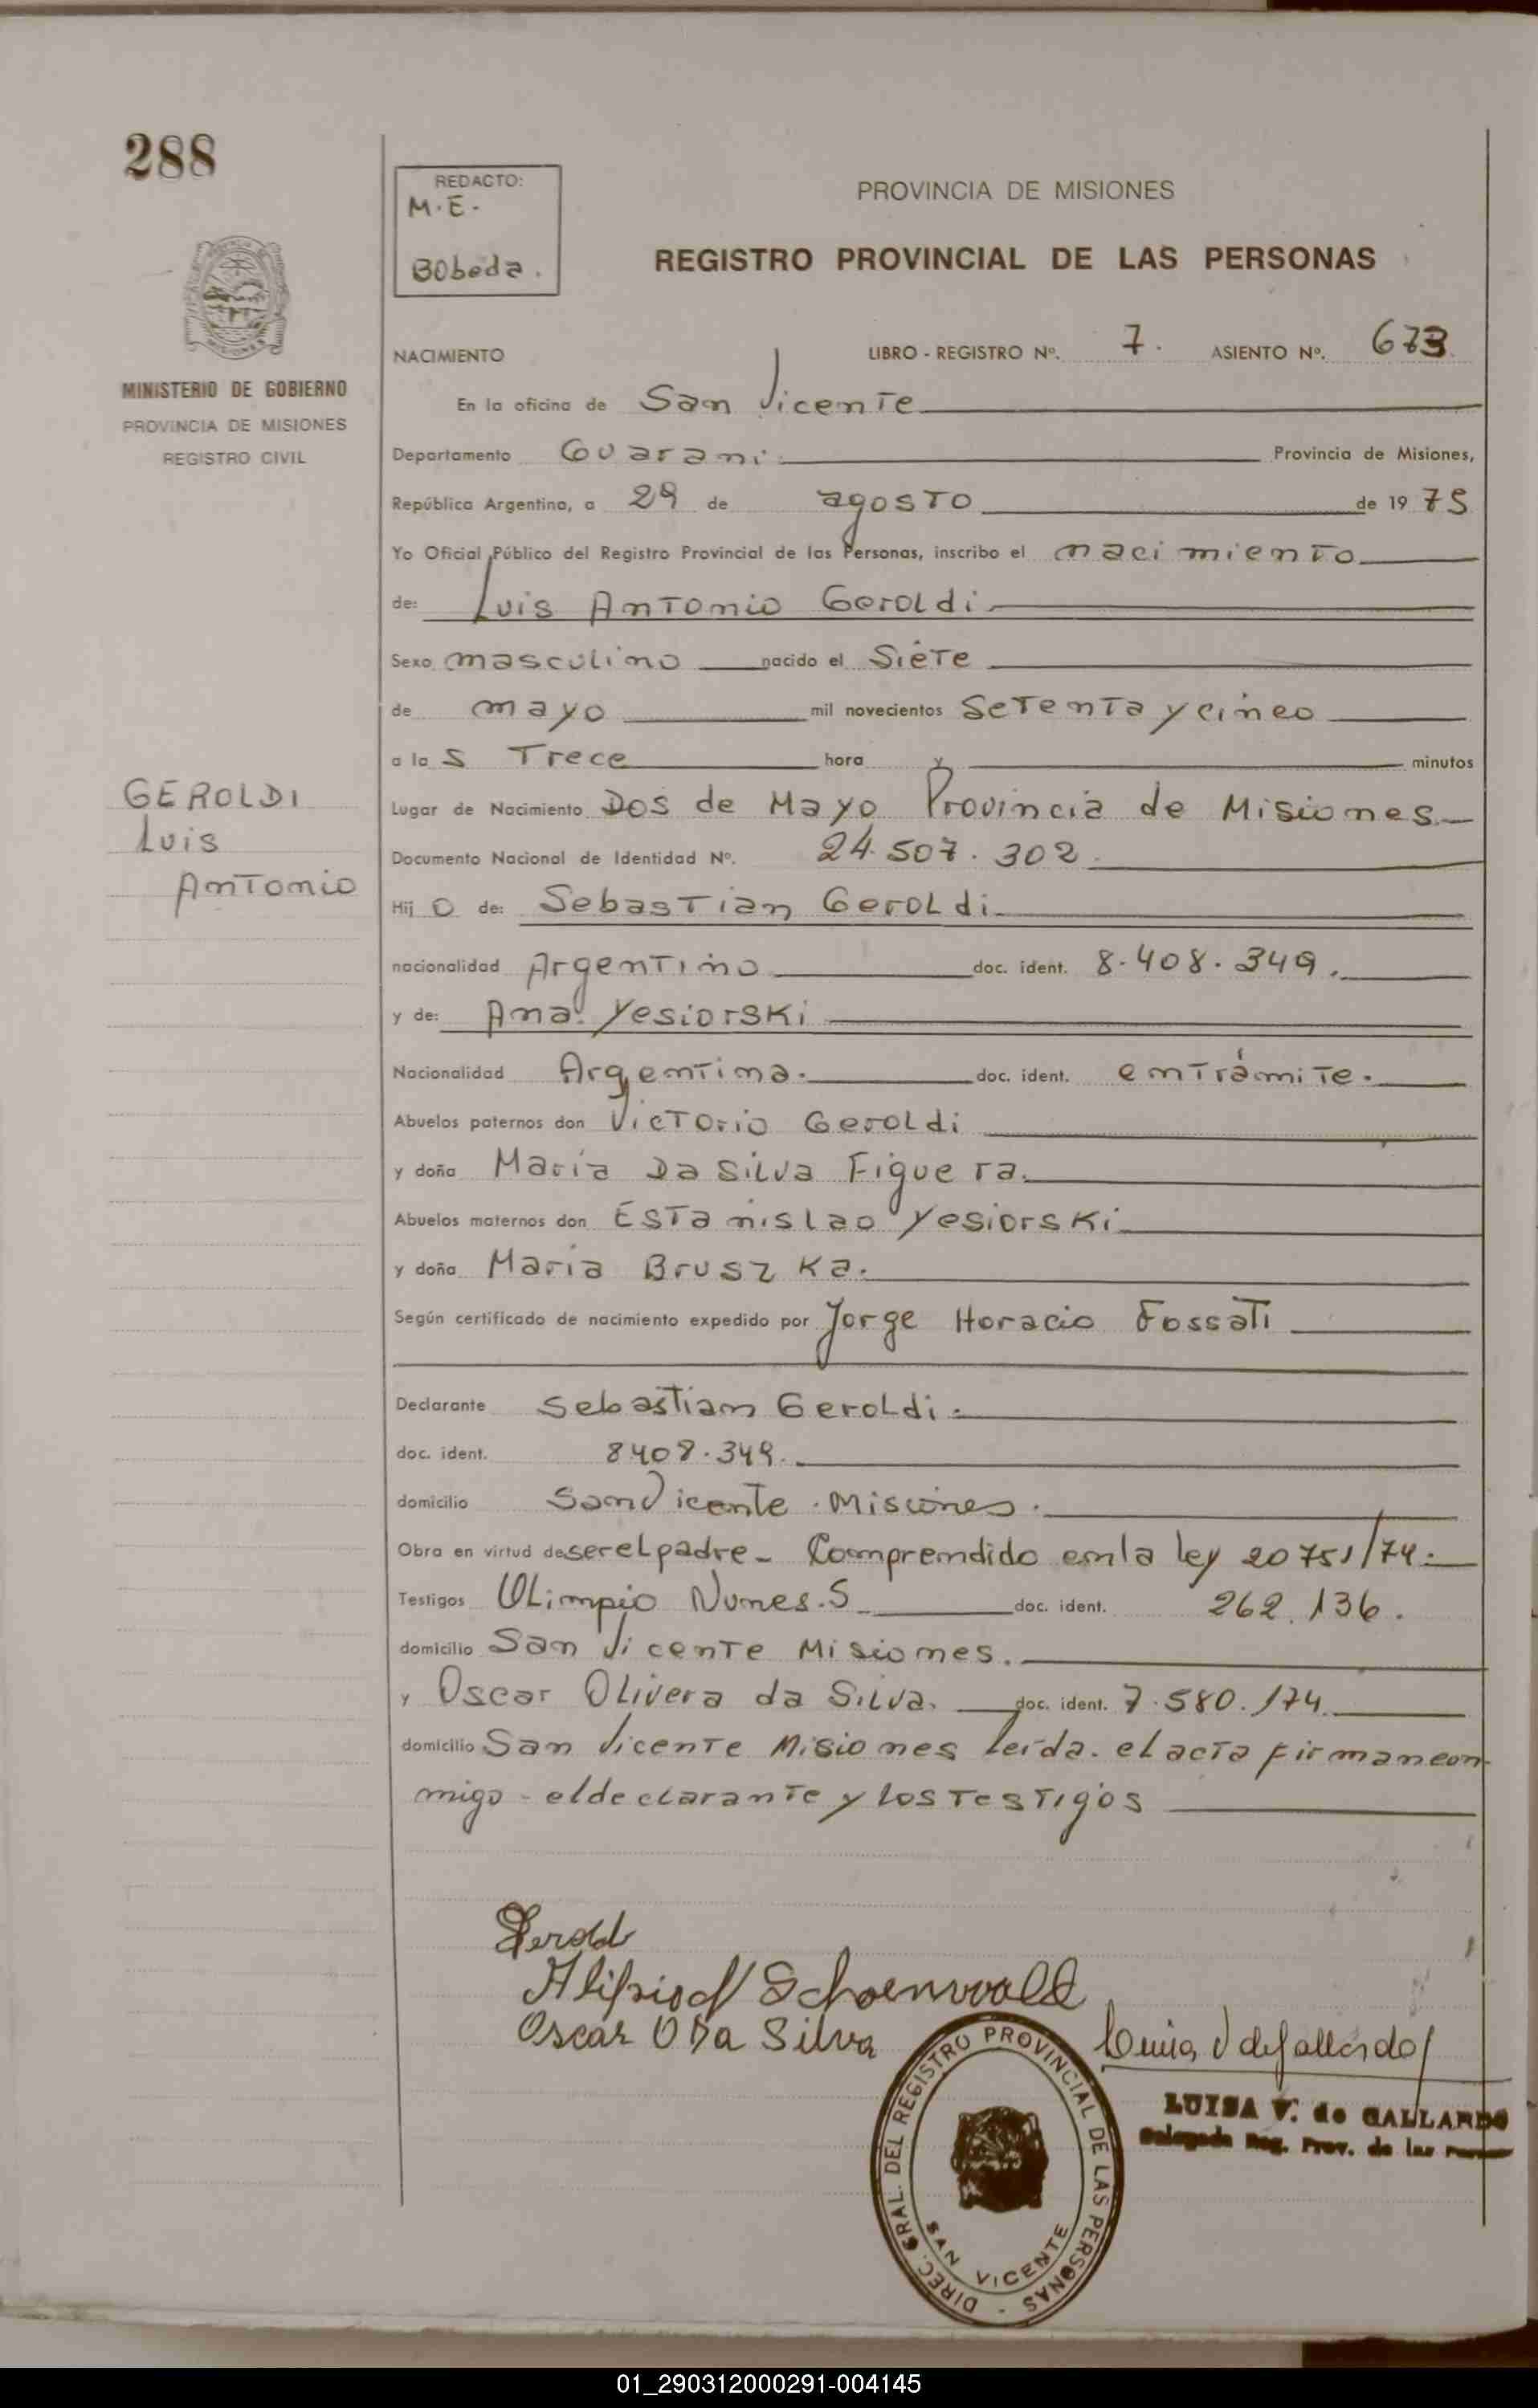 288
REDACTO:
M.E.
Bobeda.
PROVINCIA DE MISIONES
REGISTRO PROVINCIAL DE LAS PERSONAS
MINISTERIO DE GOBIERNO
PROVINCIA DE MISIONES
REGISTRO CIVIL
NACIMIENTO LIBRO - REGISTRO Nº. 7. ASIENTO Nº. 673
En la oficina de San Vicente
Departamento Guarani. Provincia de Misiones,
República Argentina, a 29 de agosto de 1975
Yo Oficial Público del Registro Provincial de las Personas, inscribo el nacimiento
de: Luis Antonio Geroldi
Sexo masculino nacido el Siete
de mayo mil novecientos setenta y cinco
a las Trece hora y minutos
GEROLDI
Luis
Antonio
Lugar de Nacimiento Dos de Mayo Provincia de Misiones
Documento Nacional de Identidad Nº. 24.507.302.
Hijo de: Sebastian Geroldi
nacionalidad Argentino doc. ident. 8.408.349.
y de: Ana Yesiorski
Nacionalidad Argentina. doc. ident. en trámite.
Abuelos paternos don Victorio Geroldi
y doña Maria Da Silva Figuera.
Abuelos maternos don Estanislao Yesiorski
y doña Maria Bruszka.
Según certificado de nacimiento expedido por Jorge Horacio Fossati
Declarante Sebastian Geroldi.
doc. ident. 8408.349.
domicilio San Vicente . Misiones.
Obra en virtud de ser el padre - Comprendido en la ley 20751/74.
Testigos Olimpio Nunes.S doc. ident. 262.136.
domicilio San Vicente Misiones.
y Oscar Olivera da Silva. doc. ident. 7.580.174.
domicilio San Vicente Misiones leída. el acta firman con
migo - el declarante y los testigos
Schoenwald
Oscar O Da Silva
Luisa V de Gallardo
LUISA V. de GALLARDO
Delegada Reg. Prov. de las
DIREC. GRAL. DEL REGISTRO PROVINCIAL DE LAS PERSONAS -
SAN VICENTE
01_290312000291-004145